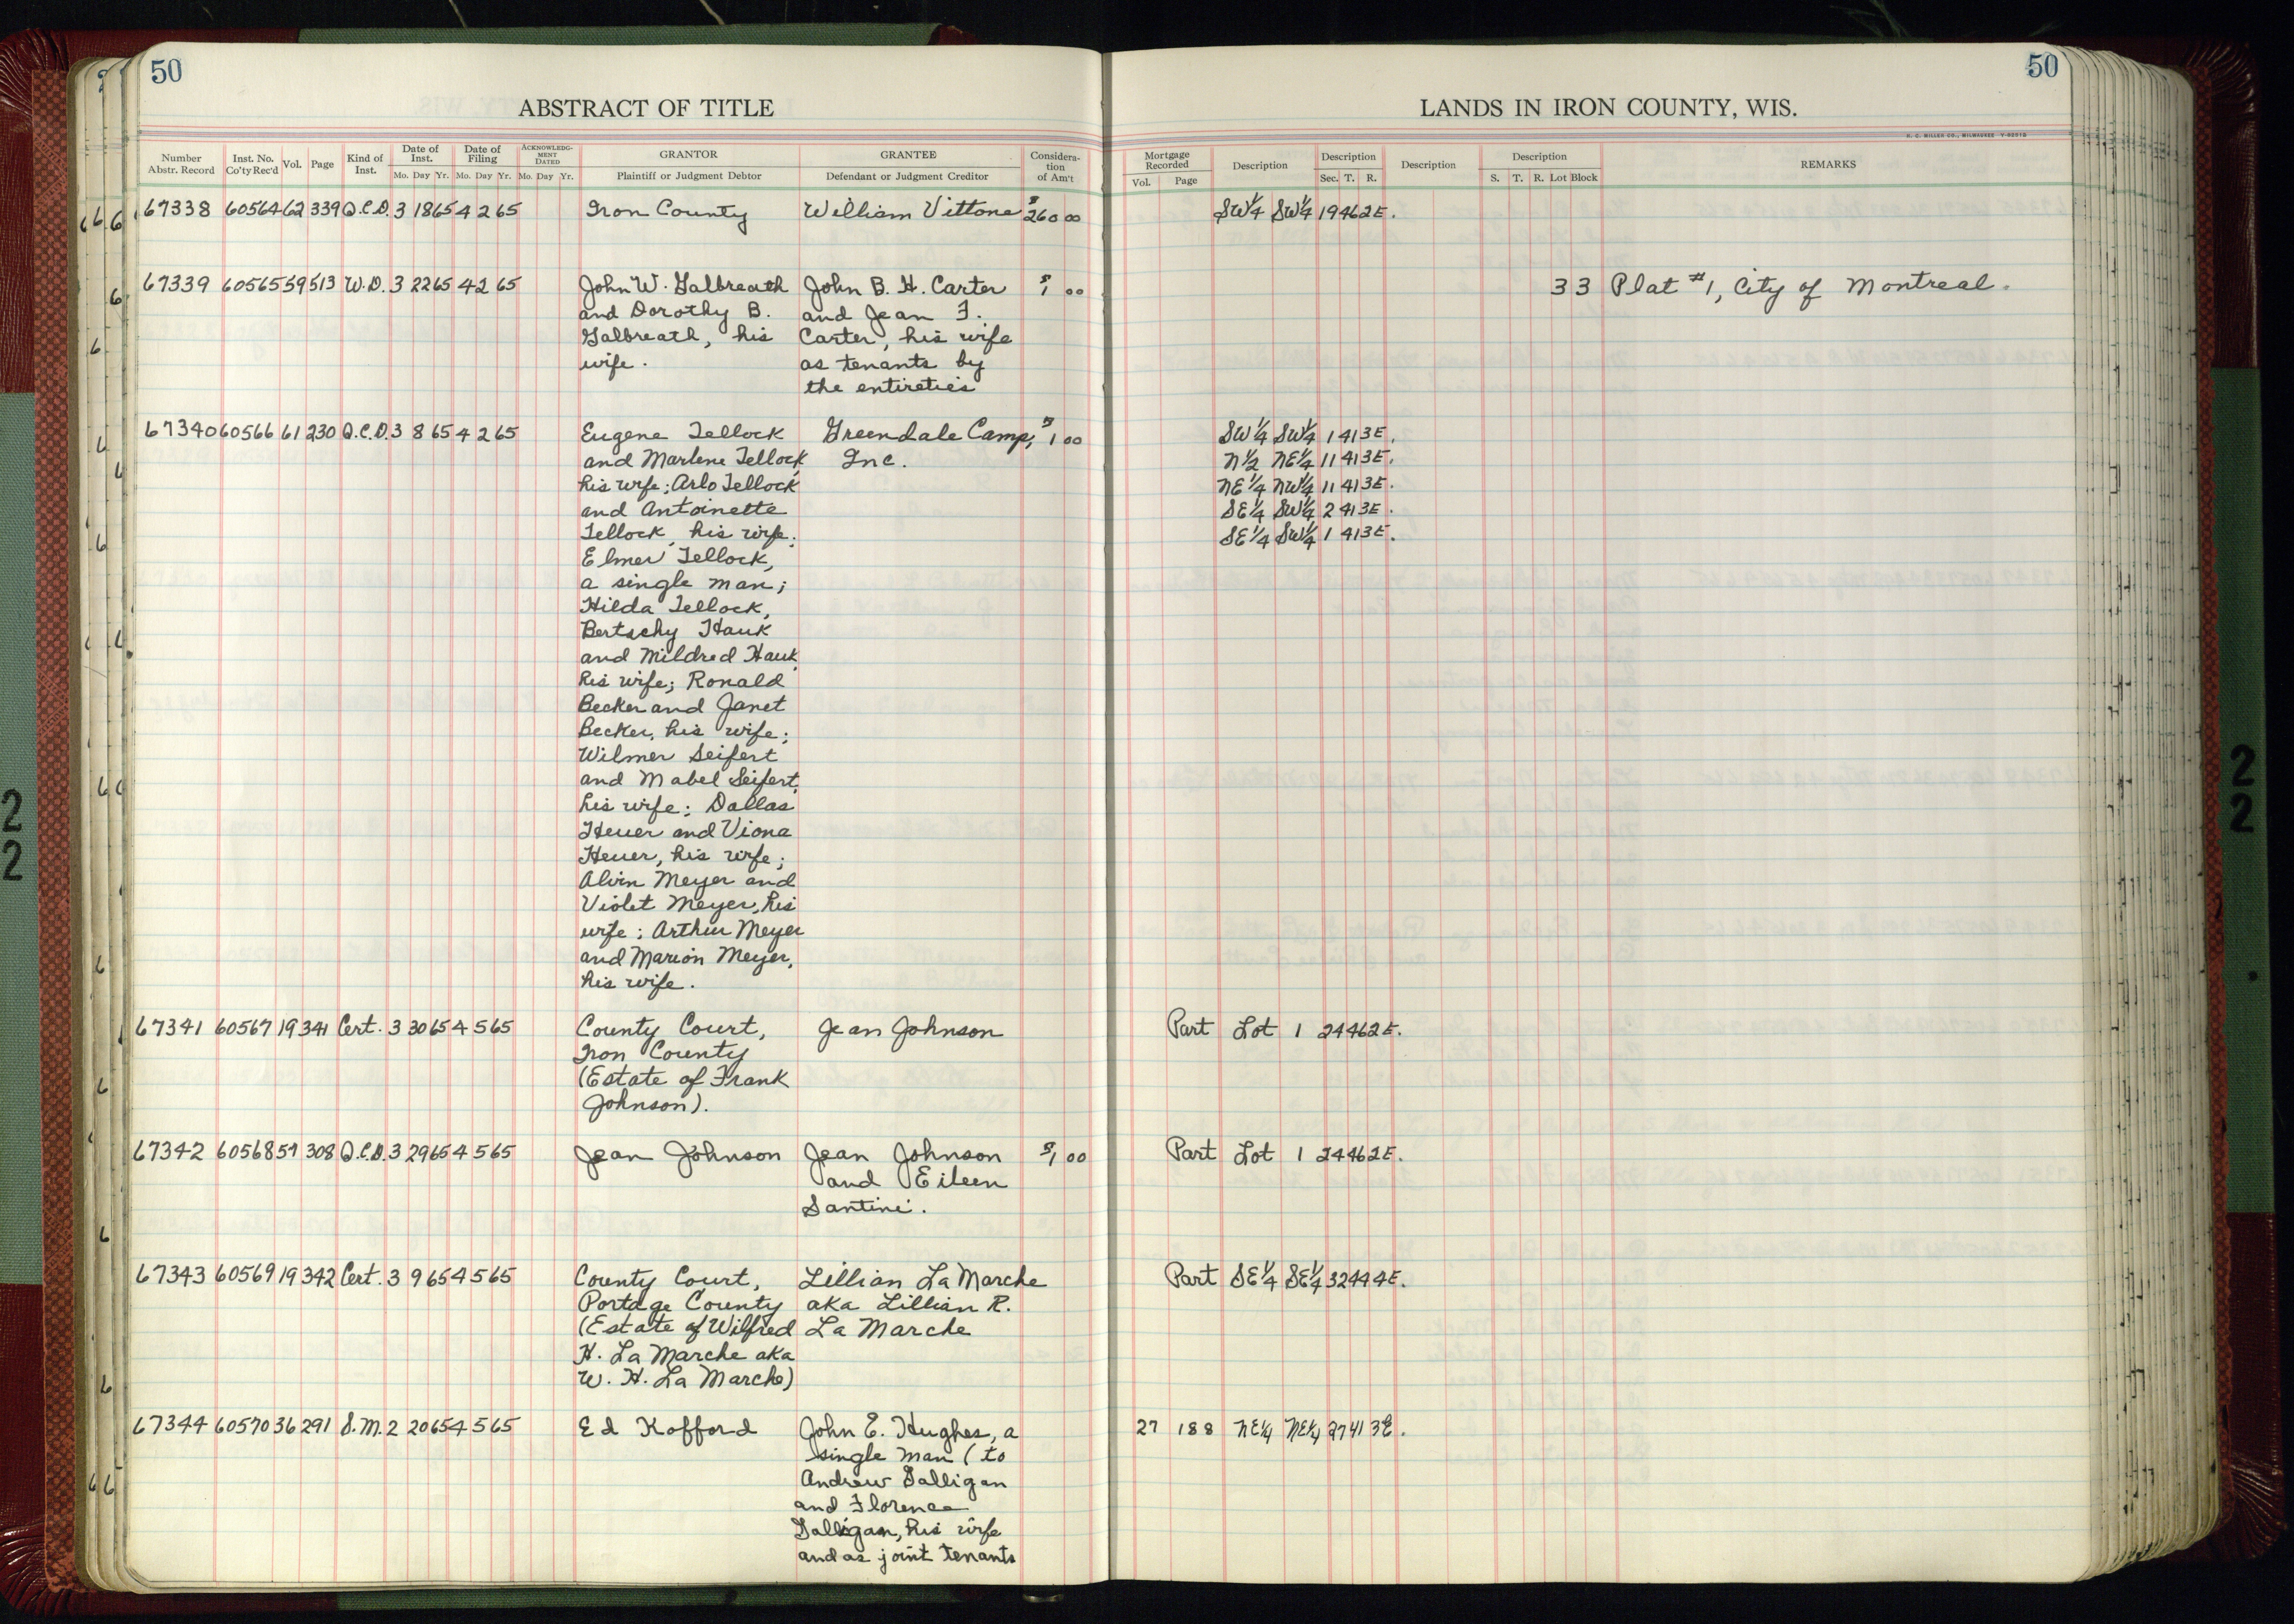 50
50
ABSTRACT OF TITLE
LANDS IN IRON COUNTY, WIS.
H. C. MILLER CO., MILWAUKEE
Number Abstr. Record
Inst. No. Co'ty Rec'd
Vol.
Page
Kind of Inst.
Date of Inst.
Mo. Day Yr.
Date of Filing
Mo. Day Yr.
ACKNOWLEDG-MENT DATED
Mo. Day Yr.
GRANTOR
Plaintiff or Judgment Debtor
GRANTEE
Defendant or Judgment Creditor
Considera-tion of Am't
Mortgage Recorded
Vol. Page
Description
Description
Sec. T. R.
Description
Description
S. T. R. Lot Block
REMARKS
67338 60564 62 339 Q.C.D. 3 18 65 4 2 65 Iron County William Vittone $260 00 SW¼ SW¼ 19 46 2E.
67339 60565 59 513 W.D. 3 22 65 4 2 65 John W. Galbreath John B. H. Carter $1 00 33 Plat #1, City of Montreal.
and Dorothy B. and Jean F.
Galbreath, his Carter, his wife
wife. as tenants by
the entireties
67340 60566 61 230 Q.C.D. 3 8 65 4 2 65 Eugene Tellock Greendale Camp, $1 00 SW¼ SW¼ 1 41 3E.
and Marlene Tellock Inc. N½ NE¼ 11 41 3E.
his wife; Arlo Tellock NE¼ NW¼ 11 41 3E.
and Antoinette SE¼ SW¼ 2 41 3E.
Tellock, his wife; SE¼ SW¼ 1 41 3E.
Elmer Tellock,
a single man;
Hilda Tellock,
Bertschy Hauk
and Mildred Hauk,
his wife; Ronald
Becker and Janet
Becker, his wife;
Wilmer Seifert
and Mabel Seifert,
his wife; Dallas
Heuer and Viona
Heuer, his wife;
Alvin Meyer and
Violet Meyer, his
wife; Arthur Meyer
and Marion Meyer,
his wife.
67341 60567 19 341 Cert. 3 30 65 4 5 65 County Court, Jean Johnson Part Lot 1 24 46 2E.
Iron County
(Estate of Frank
Johnson).
67342 60568 59 308 Q.C.D. 3 29 65 4 5 65 Jean Johnson Jean Johnson $1 00 Part Lot 1 24 46 2E.
and Eileen
Santini.
67343 60569 19 342 Cert. 3 9 65 4 5 65 County Court, Lillian La Marche Part SE¼ SE¼ 32 44 4E.
Portage County aka Lillian R.
(Estate of Wilfred La Marche
H. La Marche aka
W. H. La Marche)
67344 60570 36 291 S.M. 2 20 65 4 5 65 Ed Kofford John E. Hughes, a 27 188 NE¼ NE¼ 27 41 3E.
single man (to
Andrew Galligan
and Florence
Galligan, his wife
and as joint tenants
22
22